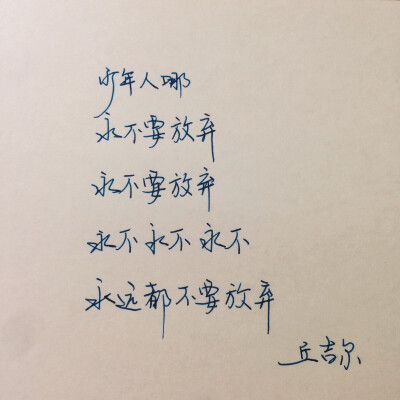 少年人哪
永不要放弃
永不要放弃
永不永不永不
永远都不要放弃
丘吉尔